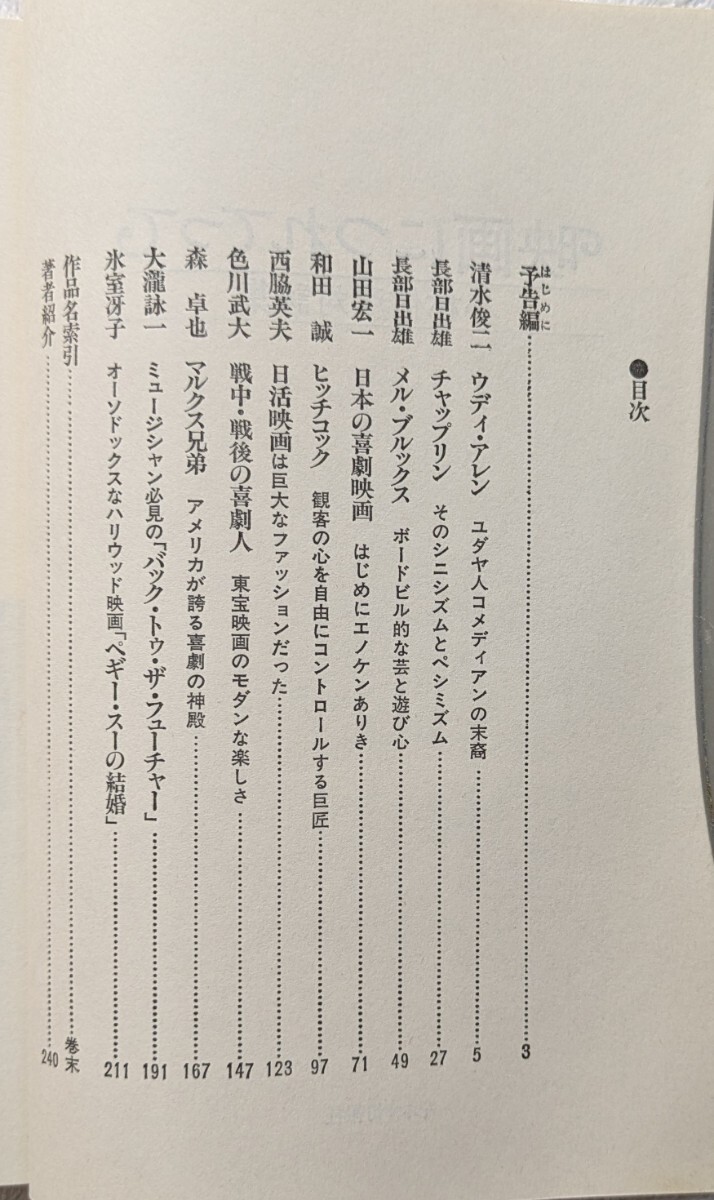 ●目次
予告編 はじめに 3
清水俊二 ウディ・アレン ユダヤ人コメディアンの末裔 5
長部日出雄 チャップリン そのシニシズムとペシミズム 27
長部日出雄 メル・ブルックス ボードビル的な芸と遊び心 49
山田宏一 日本の喜劇映画 はじめにエノケンありき 71
和田 誠 ヒッチコック 観客の心を自由にコントロールする巨匠 97
西脇英夫 日活映画は巨大なファッションだった 123
色川武大 戦中・戦後の喜劇人 東宝映画のモダンな楽しさ 147
森 卓也 マルクス兄弟 アメリカが誇る喜劇の神殿 167
大瀧詠一 ミュージシャン必見の「バック・トゥ・ザ・フューチャー」 191
氷室冴子 オーソドックスなハリウッド映画「ペギー・スーの結婚」 211
作品名索引 巻末
著者紹介 240